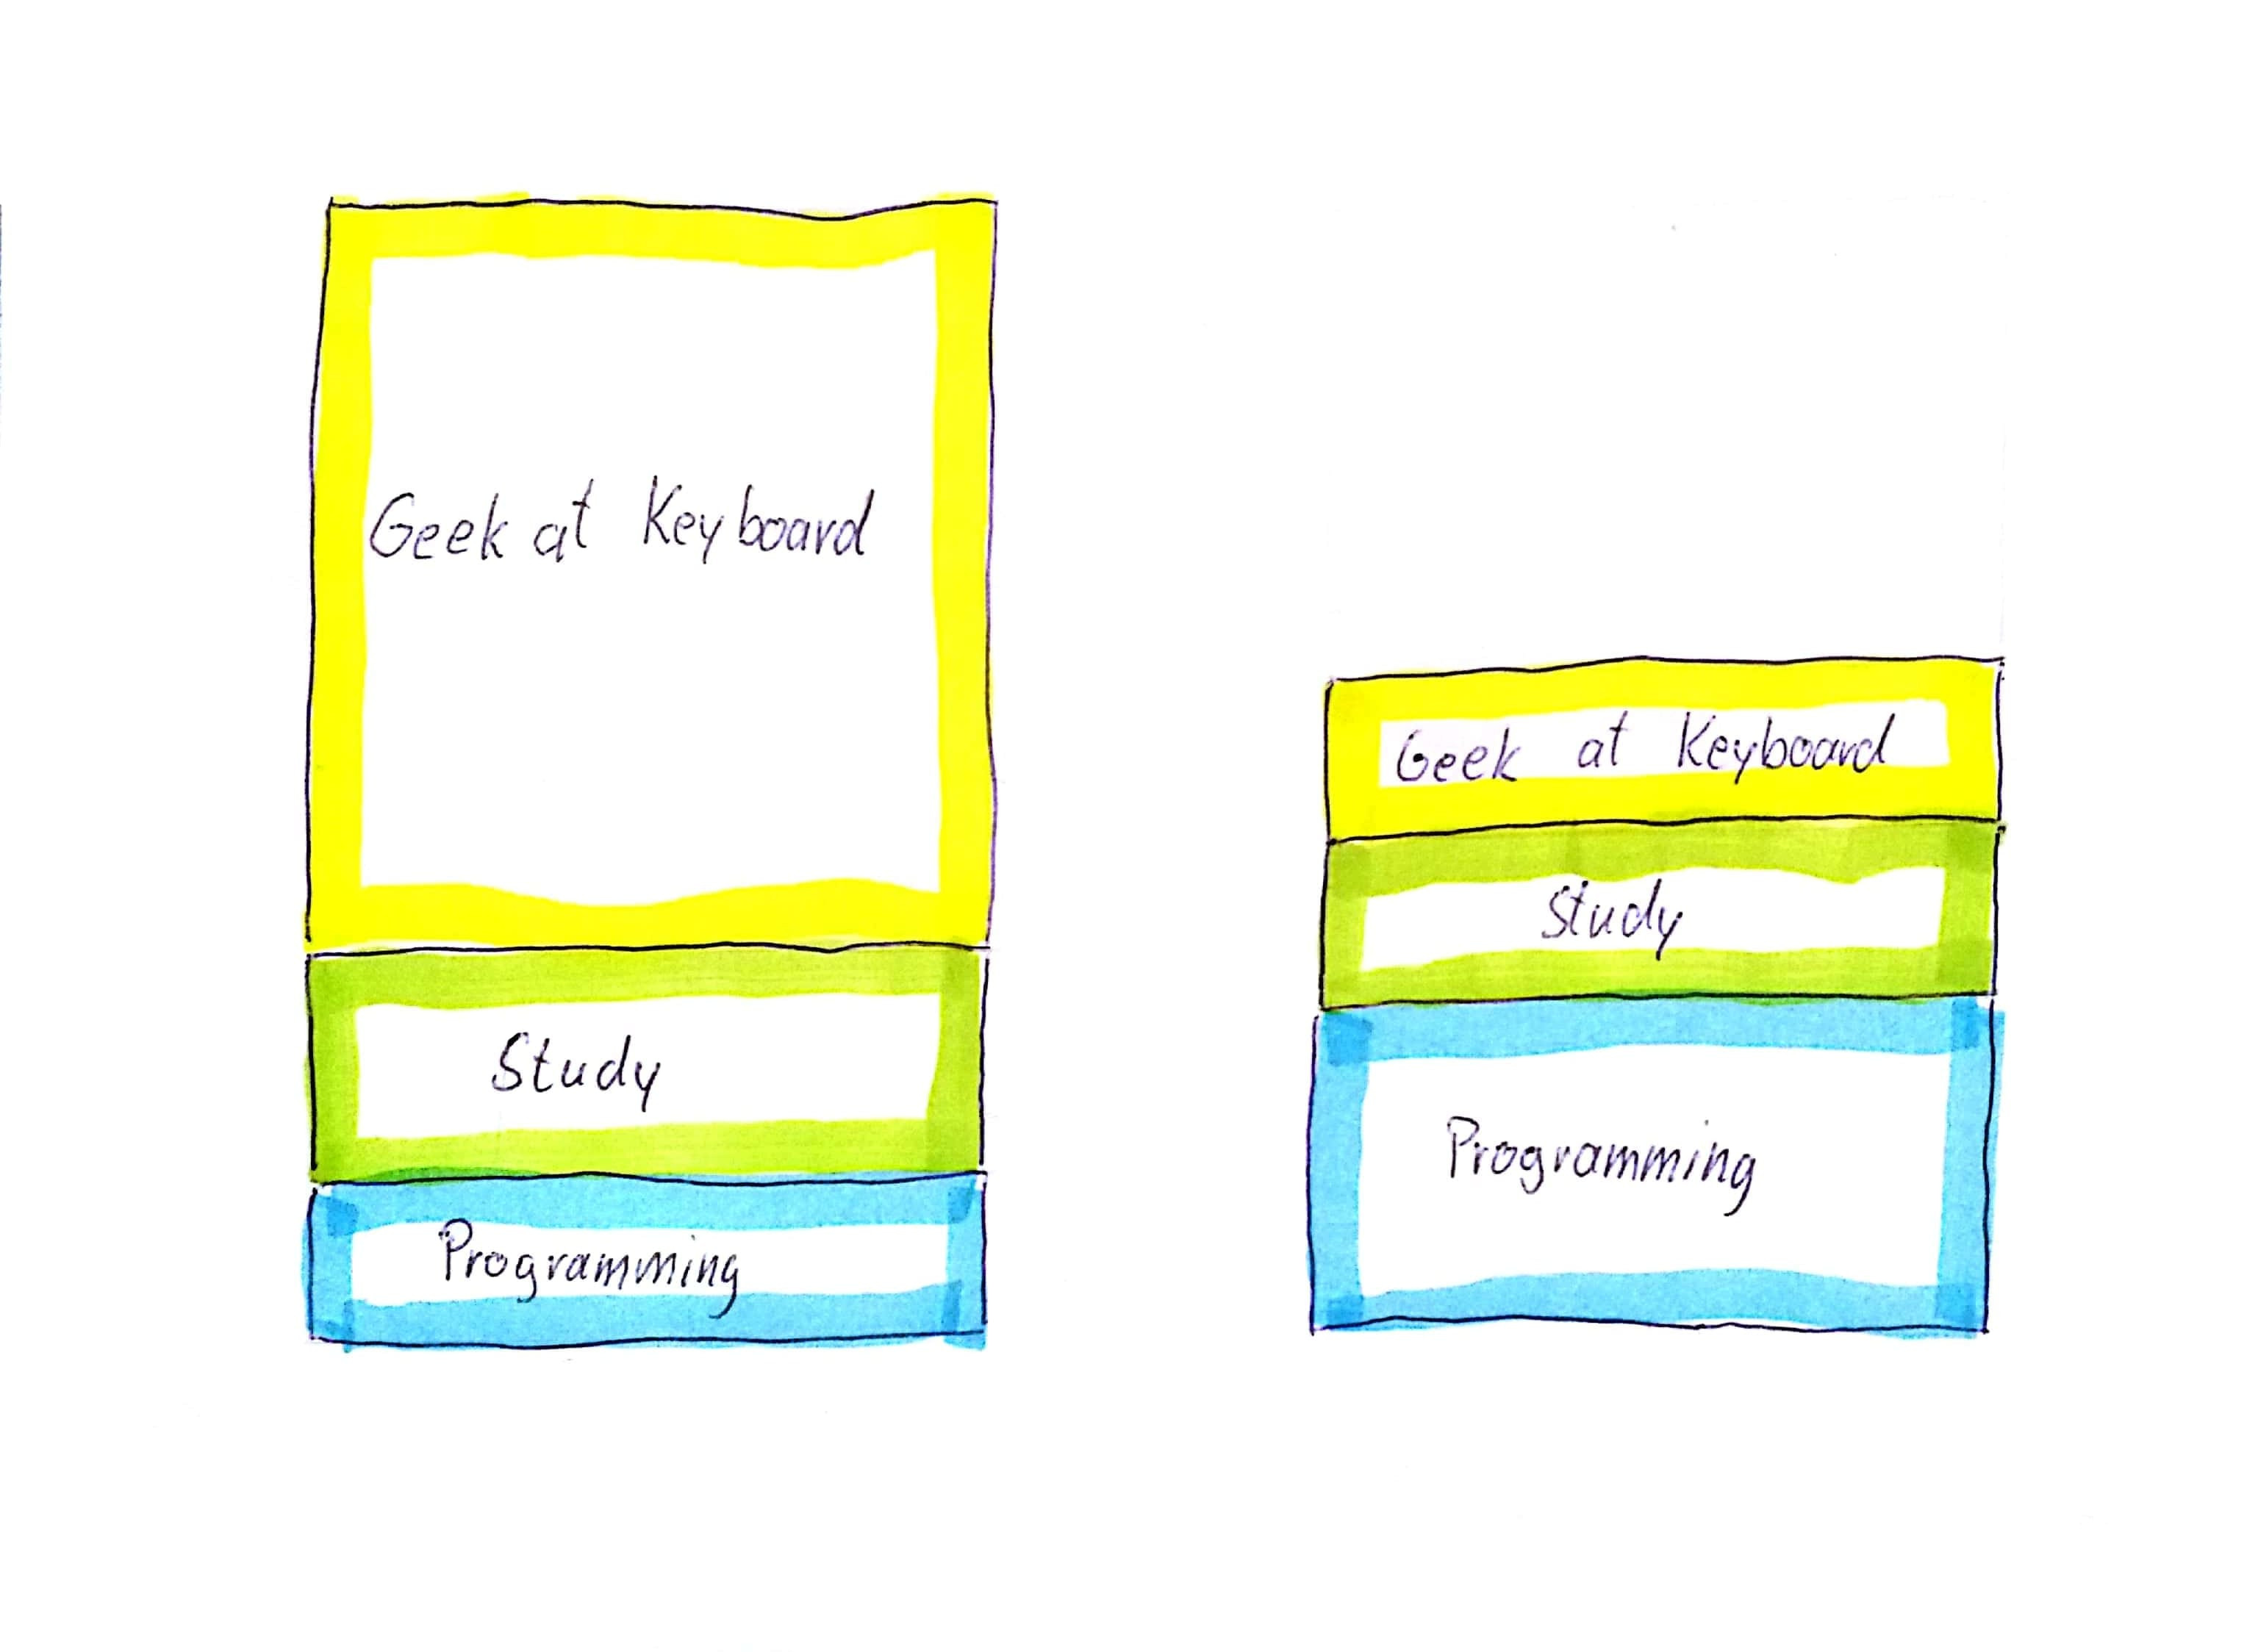 Geek at Keyboard
Study
Programming
Geek at Keyboard
Study
Programming